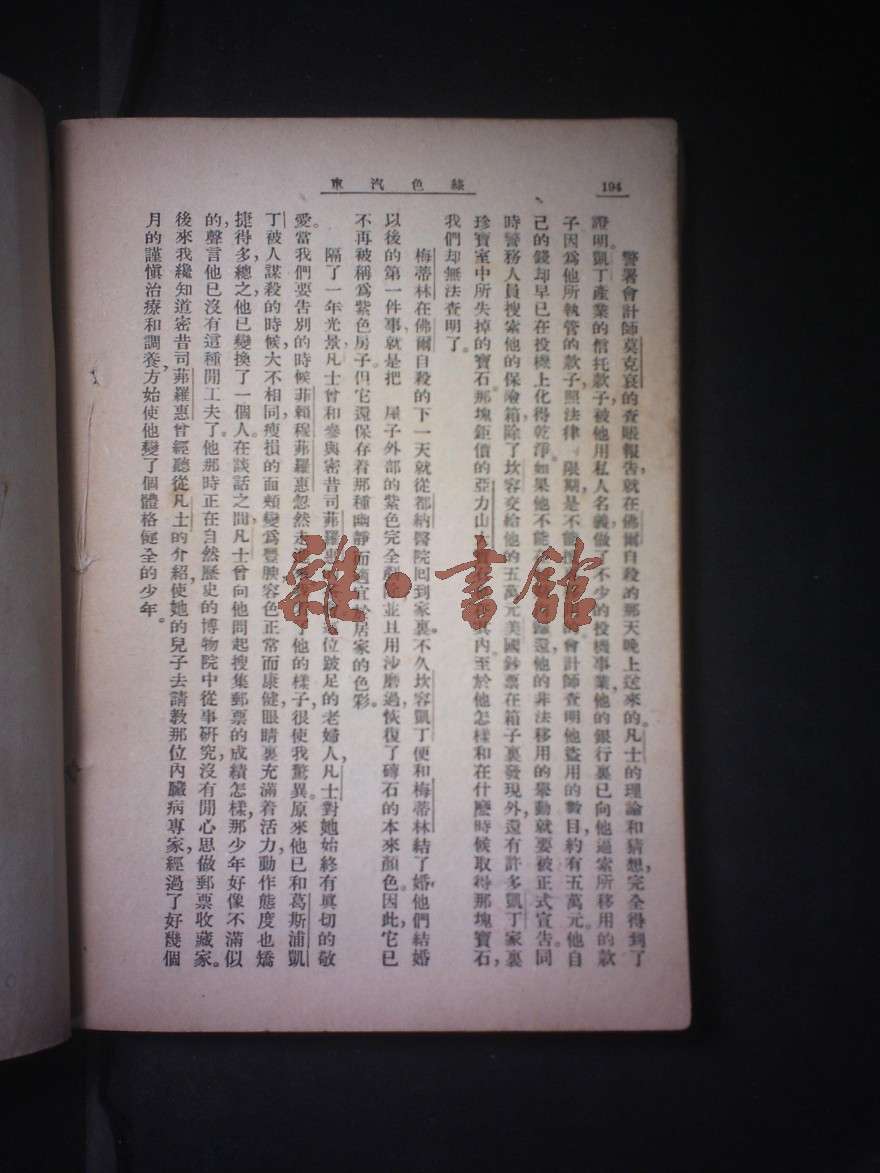 194
綠色汽車
警署會計師莫克哀的查賬報告，就在佛爾自殺的那天晚上送來的。凡士的理論和猜想，完全得到了
證明。凱丁產業的信托款子，被他用私人名義，做了不少的投機事業，他的銀行裏已向他追索所移用的款
子，因爲他所執管的款子，照法律 限期，是不能 會計師查明他盜用的數目，約有五萬元。他自
己的錢却早已在投機上化得乾淨。如果他不能 歸還，他的非法移用的舉動，就要被正式宣告。同
時警務人員搜索他的保險箱，除了坎容交給他的五萬元美國鈔票在箱子裏發現外，還有許多凱丁家裏
珍寶室中所失掉的寶石。那塊鉅價的亞力山大 其內。至於他怎樣和在什麼時候取得那塊寶石，
我們却無法查明了。
梅蒂林在佛爾自殺的下一天，就從都納醫院回到家裏。不久坎容凱丁便和梅蒂林結了婚，他們結婚
以後的第一件事，就是把 屋子外部的紫色完全 並且用沙磨過，恢復了磚石的本來顏色。因此，它已
不再被稱爲紫色房子。但它還保存着那種幽靜而適宜於居家的色彩。
隔了一年光景，凡士曾和麥與密昔司茀羅惠 這位跛足的老婦人，凡士對她始終有眞切的敬
愛。當我們要告別的時候，菲賴穆茀羅惠忽然走 了他的樣子，很使我驚異。原來他已和葛斯浦凱
丁被人謀殺的時候，大不相同，瘦損的面頰變爲豐腴，容色正常而康健，眼睛裏充滿着活力，動作態度也矯
捷得多，總之，他已變換了一個人。在談話之間，凡士曾向他問起搜集郵票的成績怎樣，那少年好像不滿似
的，聲言他已沒有這種閒工夫了。他那時正在自然歷史的博物院中從事研究，沒有閒心思做郵票收藏家。
後來我纔知道密昔司茀羅惠曾經聽從凡士的介紹，使她的兒子去請敎那位內臟病專家，經過了好幾個
月的謹愼治療和調養，方始使他變了個體格健全的少年。
雜·書館